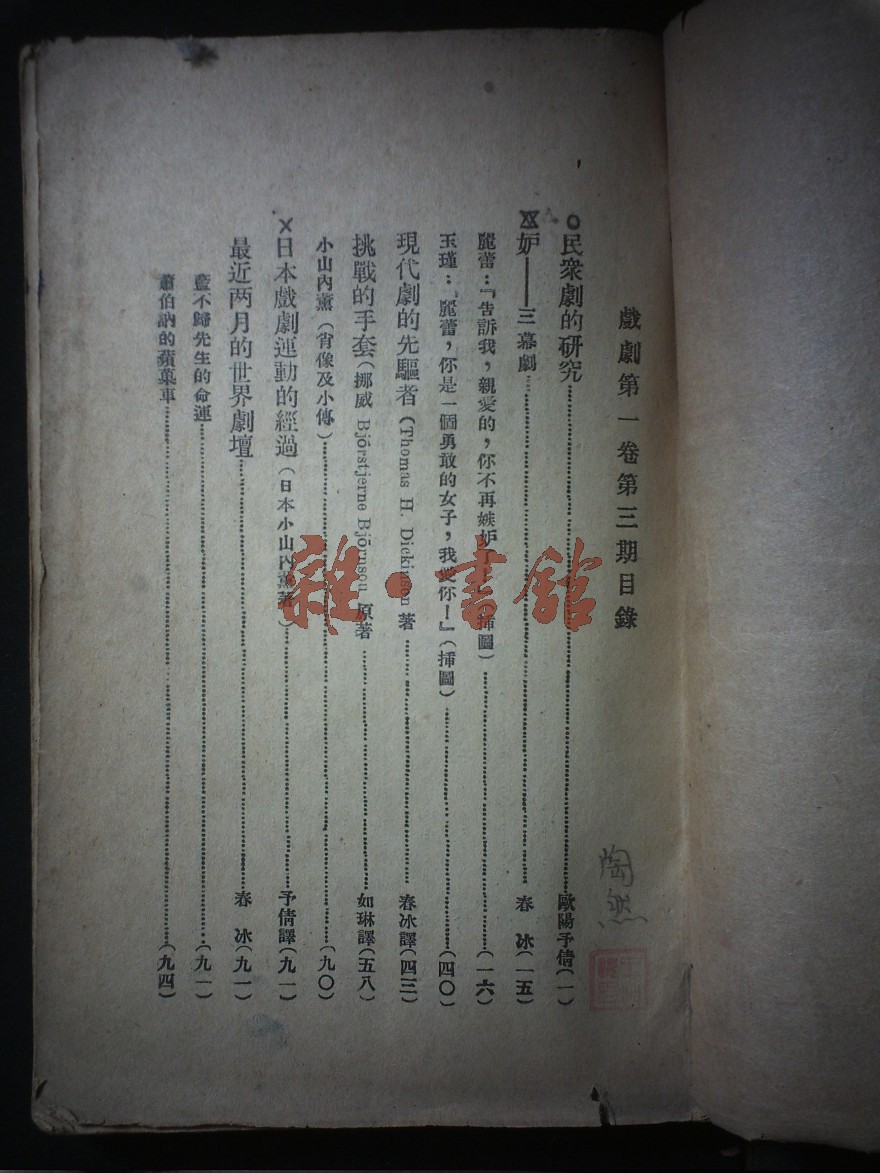 戲劇第一卷第三期目錄
民衆劇的研究 歐陽予倩(一)
妒——三幕劇 春冰(一五)
麗蕾:『告訴我,親愛的,你不再嫉妒 插圖)(一六)
玉瑾:『麗蕾,你是一個勇敢的女子,我愛你!』(插圖)(四〇)
現代劇的先驅者(Thomas H. Dickinson 著 春冰譯(四三)
挑戰的手套(挪威 Björstjerne Björnsou 原著 如琳譯(五八)
小山內薰(肖像及小傳)(九〇)
X日本戲劇運動的經過(日本小山內薰著)予倩譯(九一)
最近两月的世界劇壇 春冰(九一)
藍不歸先生的命運(九一)
蕭伯訥的蘋菓車(九四)
陶然
雜·書館